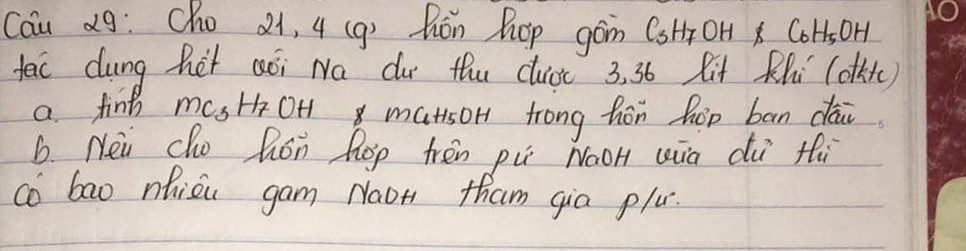 Câu 29: Cho 21,4 (g) hỗn hợp gồm C3H7OH & C6H5OH
tác dụng hết với Na dư thu được 3,36 lít khí (đktc)
a. tính mC3H7OH & mC6H5OH trong hỗn hợp ban đầu.
b. Nếu cho hỗn hợp trên pứ NaOH vừa đủ thì
có bao nhiêu gam NaOH tham gia p/ư.
AO